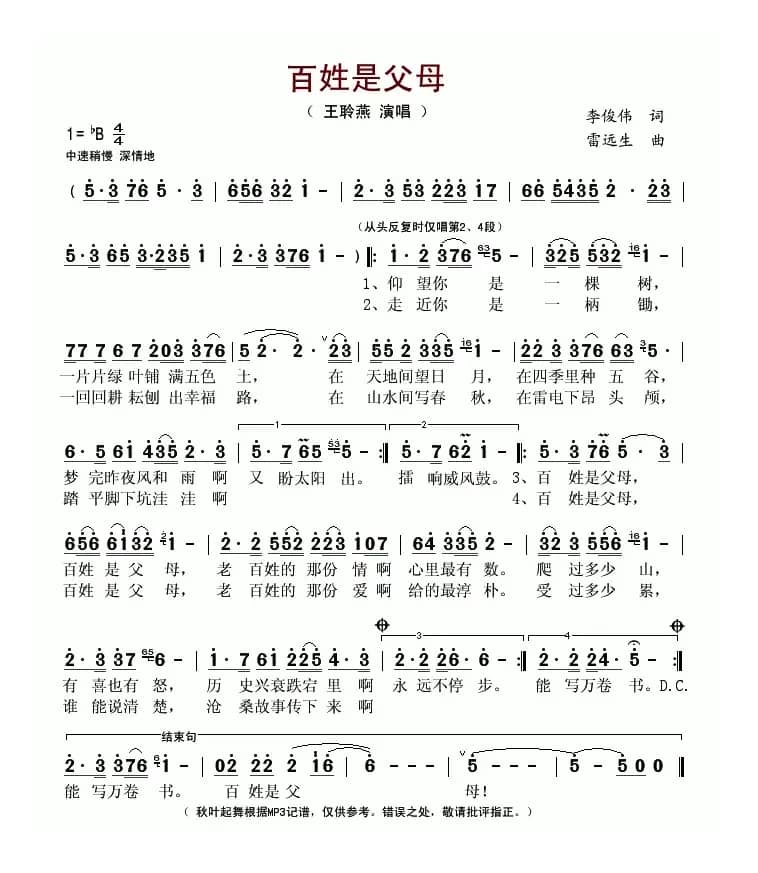 百姓是父母
（ 王聆燕 演唱 ）
李俊伟 词
1=♭B 4/4
雷远生 曲
中速稍慢 深情地
( 5·3 76 5· 3 | 656 32 1 - | 2·3 53 223 17 | 66 5435 2· 23 |
（从头反复时仅唱第2、4段）
5·3 65 3·235 1 | 2·3 376 1 - ) ‖: 1·2 376 63 5 - | 325 532 i6 1 - |
1、仰 望你 是 一 棵 树，
2、走 近你 是 一 柄 锄，
77 7 6 7 203 376 | 5 2· 2· ∨ 23 | 55 2 335 i6 1 - | 22 3 276 63 3 5· |
一片片绿 叶铺 满五色 土， 在 天地间望日 月，在四季里种 五 谷，
一回回耕 耘刨 出幸福 路， 在 山水间写春 秋，在雷电下昂 头 颅，
1 2
6·5 61 435 2·3 | 5·7 65 53 5 - :‖ 5·7 62 1 - :‖ 5·3 76 5· 3 |
梦 完昨夜风和 雨 啊 又 盼太阳 出。 擂 响威风鼓。3、百 姓是父母，
踏 平脚下坑洼 洼 啊 4、百 姓是父母，
656 6132 2 1 - | 2·2 552 223 107 | 64 335 2 - | 32 3 556 i6 1 - |
百姓 是 父 母， 老 百姓的 那份 情 啊 心里最有 数。 爬 过多少 山，
百姓 是 父 母， 老 百姓的 那份 爱 啊 给的最淳 朴。 受 过多少 累，
3 4
2·3 37 65 6 - | 1·7 61 225 4·3 | 2·2 226· 6 - :‖ 2·2 224· 1 - :‖
有 喜也有 怒， 历 史兴衰跌宕 里 啊 永 远不停 步。 能 写万卷 书。D.C.
谁 能说清 楚， 沧 桑故事传下 来 啊
结束句
2·3 376 6 1 - | 02 22 2 16 | 6 - - - | ∨ 5 - - - | 5 - 500 ‖
能 写万卷 书。 百 姓是 父 母！
（ 秋叶起舞根据MP3记谱，仅供参考。错误之处，敬请批评指正。）